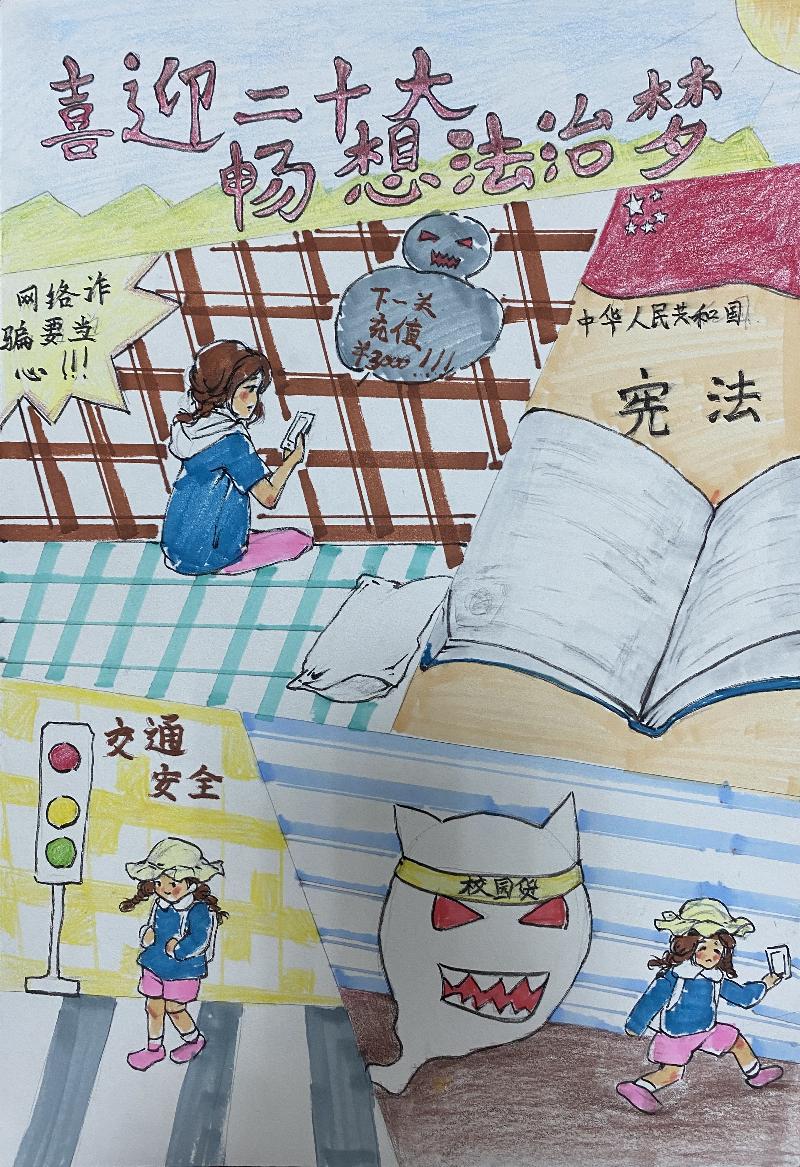 喜迎二十大
畅想法治梦
网络诈
骗要当
心!!!
下一关
充值
¥3000!!!
中华人民共和国
宪法
交通
安全
校园贷